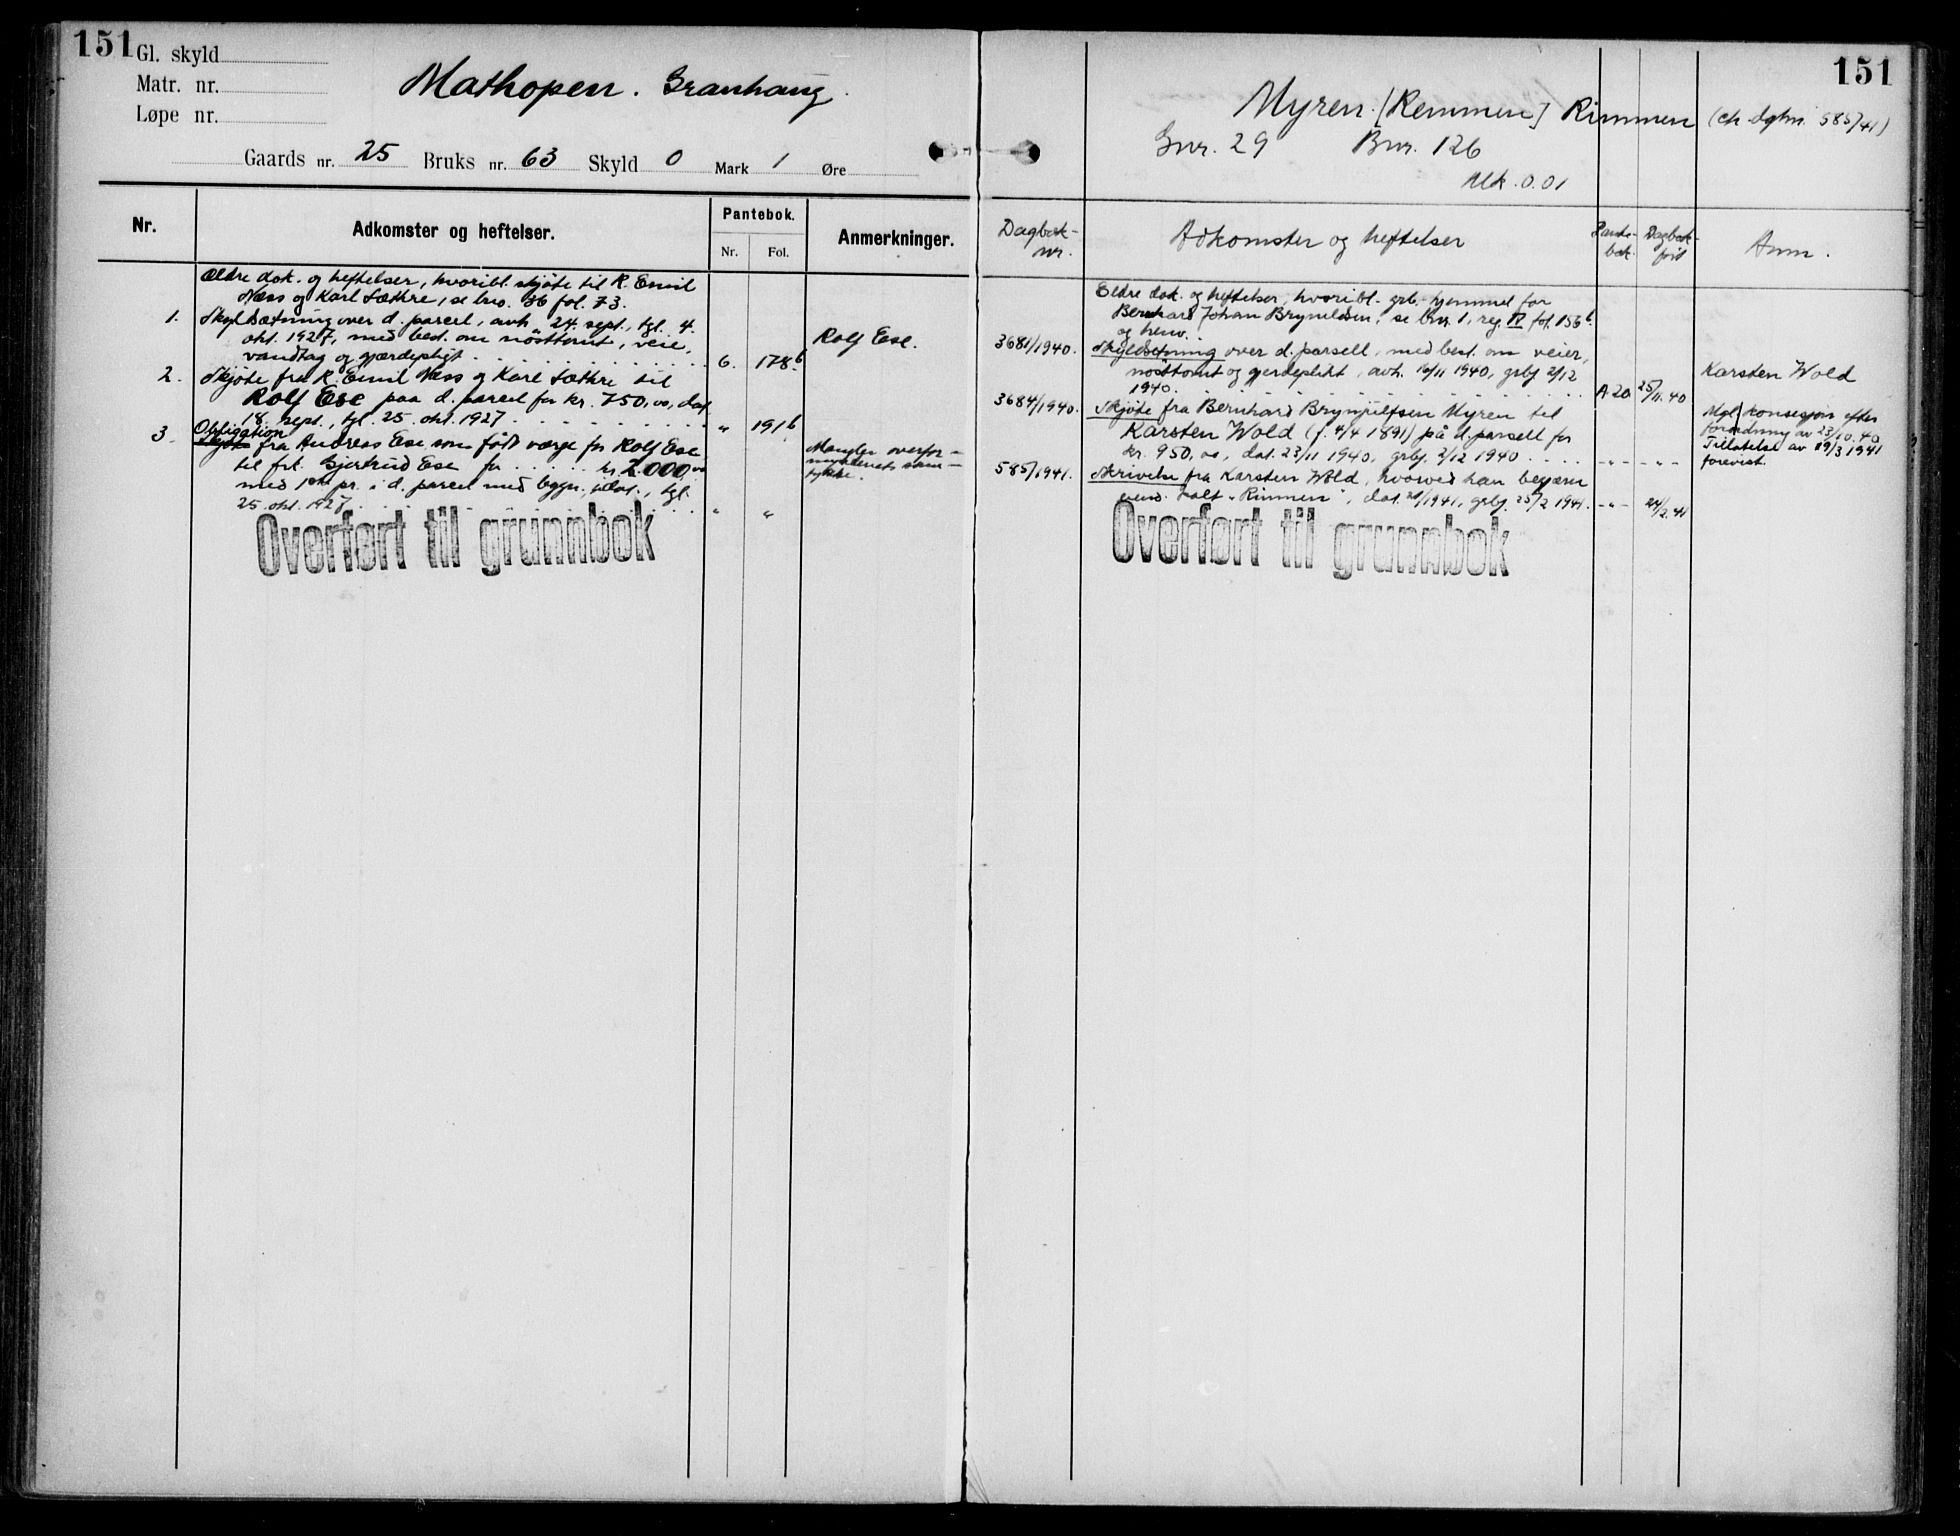 151
Gl. skyld
Matr. nr.
Løpe nr.
Mathopen. Granhaug.
Gaards nr. 25 Bruks nr. 63 Skyld 0 Mark 1 Øre
Nr. Adkomster og heftelser. Pantebok. Nr. Fol. Anmerkninger.
Ældre dok. og heftelser, hvoribl. skjøte til R. Emil
Næss og Karl Sæthre, se bno. 36 fol. 73.
1. Skyldsætning over d. parcel, avh. 24. sept., tgl. 4.
okt. 1927, med best. om nøsttomt, veie,
vandtag og gjærdepligt . . . 6. 178b
Rolf Ese.
2. Skjøte fra R. Emil Næss og Karl Sæthre til
Rolf Ese paa d. parcel for kr. 750,00, dat.
18. sept., tgl. 25. okt. 1927 . . . " 191b
3. Obligation
Skjøte fra Andreas Ese som født værge for Rolf Ese
til frk. Gjertrud Ese for . . . kr. 2.000,00
med 1ste pr. i d. parcel med bygn., udat., tgl.
25. okt. 1927 . . . " "
Mangler overfor-
mynderiets sam-
tykke.
Overført til grunnbok
151
Myren. [Remmen] Rimmen (cfr. dgbnr. 585/41)
Gnr. 29 Bnr. 126
Mk. 0.01
Dagbok-
nr.
Adkomster og heftelser
Pante-
bok.
Dagbok-
ført
Anm.
Eldre dok. og heftelser, hvoribl. grb. hjemmel for
Bernhard Johan Brynildsen, se bnr. 1, reg. IV fol. 156b.
og henv.
3681/1940. Skyldsetning over d. parsell, med best. om veier,
nøsttomt og gjerdeplikt, avh. 16/11 1940, grbf. 2/12
1940. . . . A 20 25/11.40
Karsten Wold
3684/1940. Skjøte fra Bernhard Brynjulfsen Myren til
Karsten Wold (f. 4/4 1891) på d. parsell for
kr. 950,00, dat. 23/11 1940, grbf. 2/12 1940 . . . -"- -"-
Mgl. konsesjon efter
forordning av 23/10.40
Tillatelse av 19/3 1941
forevist.
585/1941. Skrivelse fra Karsten Wold, hvorved han begjærer
eiend. kalt "Rimmen", dat. 20/1941, grbf. 25/2 1941. -"- 24/2.41
Overført til grunnbok